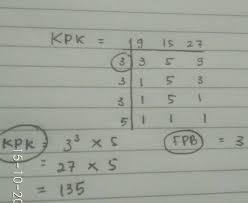 KPK = 9 15 27
3 3 5 9
3 1 5 3
3 1 5 1
5 1 1 1
KPK = 3³ × 5 FPB = 3
= 27 × 5
= 135
15-10-20